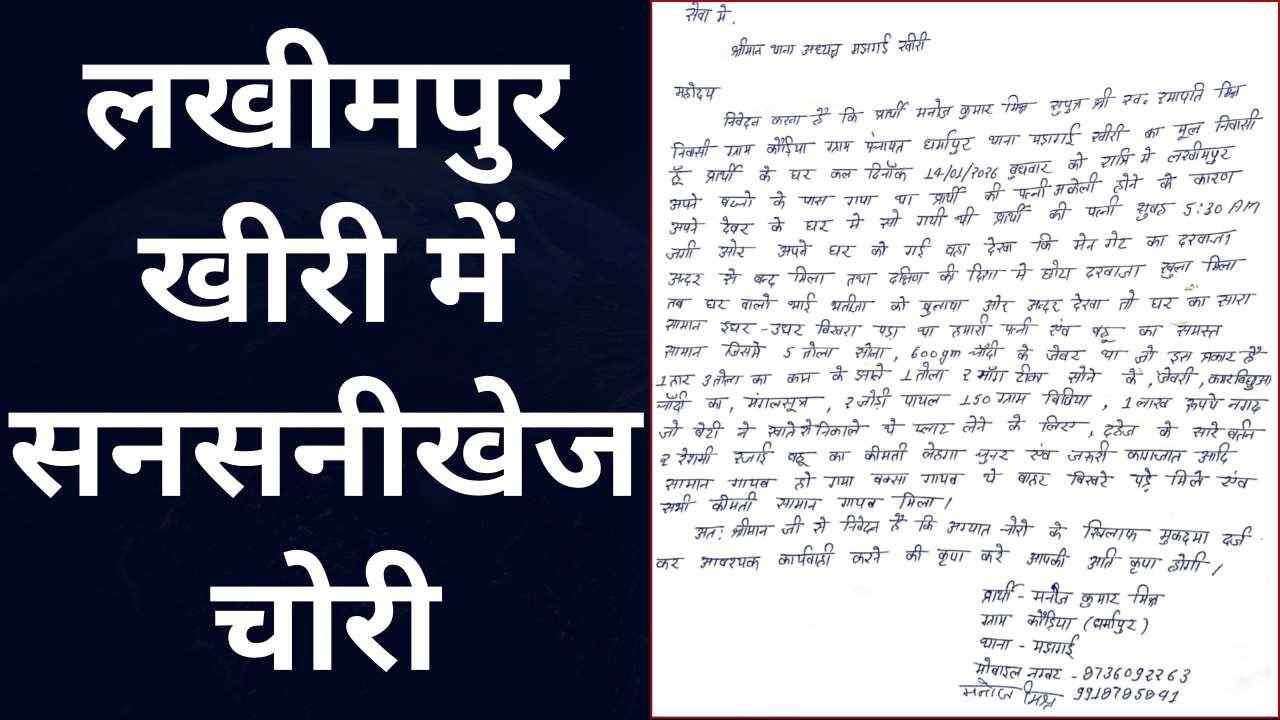 लखीमपुर
खीरी में
सनसनीखेज
चोरी
सेवा मे,
श्रीमान थाना अध्यक्ष मझगई खीरी
महोदय
निवेदन करना है कि प्रार्थी मनोज कुमार मिश्र सुपुत्र श्री स्व० रमापति मिश्र
निवासी ग्राम कौड़िया ग्राम पंचायत धर्मापुर थाना मझगई खीरी का मूल निवासी
हूँ प्रार्थी के घर कल दिनाँक 14/01/2026 बुधवार को रात्रि मे लखीमपुर
अपने बच्चो के पास गया था प्रार्थी की पत्नी अकेली होने के कारण
अपने देवर के घर मे सो गयी थी प्रार्थी की पत्नी सुबह 5:30 AM
जगी और अपने घर को गई वहा देखा कि मेन गेट का दरवाजा
अन्दर से बन्द मिला तथा दक्षिण की दिशा मे छोटा दरवाजा खुला मिला
तब घर वालो भाई भतीजा को बुलाया और अन्दर देखा तो घर का सारा
सामान इधर-उधर बिखरा पड़ा था हमारी पत्नी एंव बहू का समस्त
सामान जिसमे 5 तोला सोना, 600gm चाँदी के जेवर था जो इस प्रकार है
1 हार 3 तोला का कान के झाले 1 तोला 2 माँग टीका सोने के, जेवरी,
चाँदी का, मंगलसूत्र, 2 जोड़ी पायल 150 ग्राम बिछिया, 1 लाख रूपये नगद
जो बेटी ने खाते से निकाले थे प्लाट लेने के लिए, दहेज के सारे बर्तन
2 रेशमी रजाई बहू का कीमती लेहगा चुनर एंव जरूरी कागजात आदि
सामान गायब हो गया बक्सा गायब थे बाहर बिखरे पड़े मिले एंव
सभी कीमती सामान गायब मिला।
अत: श्रीमान जी से निवेदन है कि अग्यात चोरो के खिलाफ मुकदमा दर्ज
कर आवश्यक कार्यवाही करने की कृपा करे आपकी अति कृपा होगी।
प्रार्थी - मनोज कुमार मिश्र
ग्राम कौड़िया (धर्मापुर)
थाना - मझगई
मोबाइल नम्बर - 8736092263
मनोज मिश्र